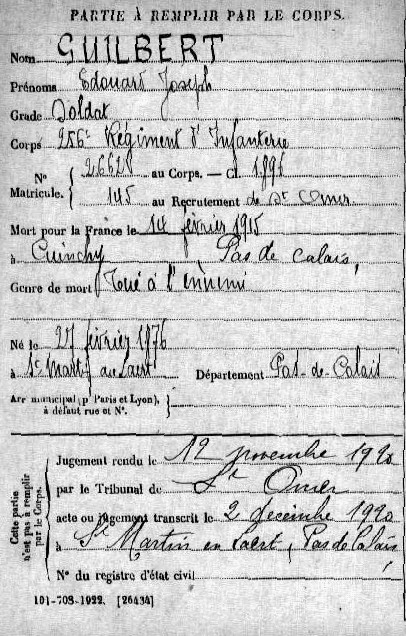 PARTIE À REMPLIR PAR LE CORPS.
Nom GUILBERT
Prénoms Edouard Joseph
Grade Soldat
Corps 256e Régiment d'Infanterie
N° Matricule. { 26628 au Corps. — Cl. 1896
145 au Recrutement de St Omer
Mort pour la France le 14 février 1915
à Cuinchy Pas de calais,
Genre de mort Tué à l'ennemi
Né le 27 février 1876
à St Martin au Laert Département Pas-de-Calais
Arr municipal (pr Paris et Lyon), à défaut rue et N°. }
Cette partie n'est pas à remplir par le Corps.
Jugement rendu le 12 novembre 1920
par le Tribunal de St Omer
acte ou jugement transcrit le 2 décembre 1920
à St Martin en Laert, Pas de Calais
N° du registre d'état civil
101-708-1922. [26434]